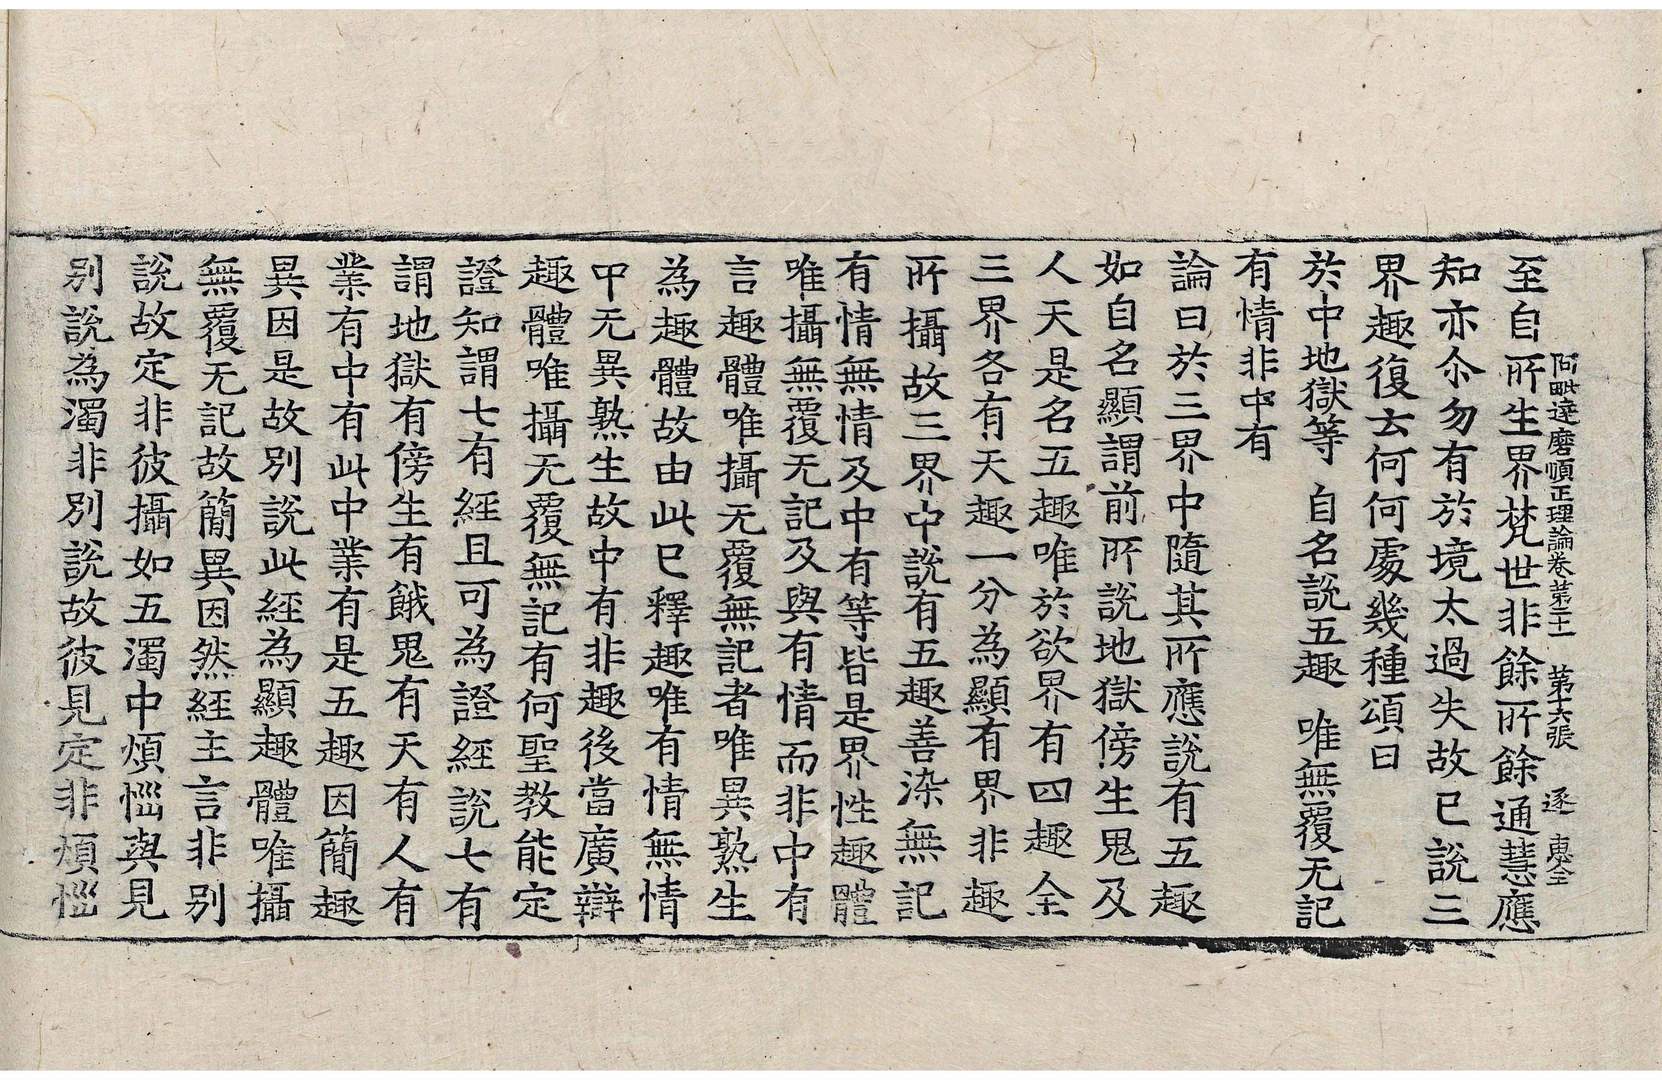 阿毗達磨順正理論卷苐二十一　第十六張　逐　惠全
至自所生界梵世非餘所餘通慧應
知亦尒勿有於境太過失故已說三
界趣復云何何處幾種頌曰
於中地獄等　自名說五趣　唯無覆无記
有情非中有
論曰於三界中隨其所應說有五趣
如自名顯謂前所說地獄傍生鬼及
人天是名五趣唯於欲界有四趣全
三界各有天趣一分為顯有界非趣
所攝故三界中說有五趣善染無記
有情無情及中有等皆是界性趣體
唯攝無覆无記及與有情而非中有
言趣體唯攝无覆無記者唯異熟生
為趣體故由此已釋趣唯有情無情
中无異熟生故中有非趣後當廣辯
趣體唯攝无覆無記有何聖教能定
證知謂七有經且可為證經說七有
謂地獄有傍生有餓鬼有天有人有
業有中有此中業有是五趣因簡趣
異因是故別說此經為顯趣體唯攝
無覆无記故簡異因然經主言非別
說故定非彼攝如五濁中煩惱與見
別說為濁非別說故彼見定非煩惱